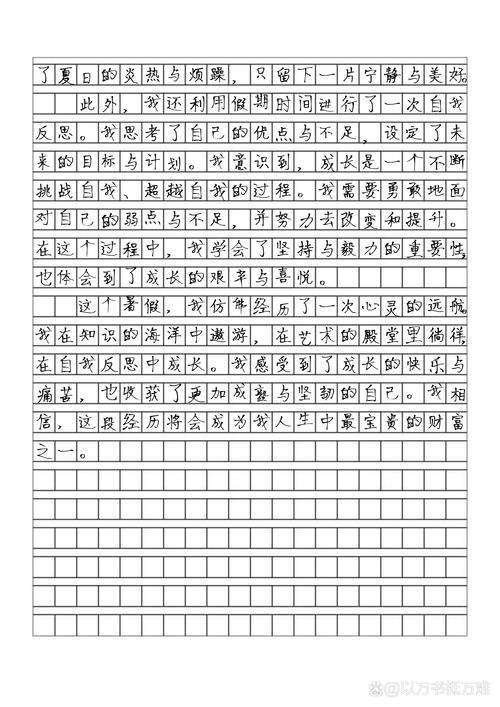 了夏日的炎热与烦躁，只留下一片宁静与美好。
此外，我还利用假期时间进行了一次自我
反思。我思考了自己的优点与不足，设定了未
来的目标与计划。我意识到，成长是一个不断
挑战自我、超越自我的过程。我需要勇敢地面
对自己的弱点与不足，并努力去改变和提升。
在这个过程中，我学会了坚持与毅力的重要性，
也体会到了成长的艰辛与喜悦。
这个暑假，我仿佛经历了一次心灵的远航。
我在知识的海洋中遨游，在艺术的殿堂里徜徉，
在自我反思中成长。我感受到了成长的快乐与
痛苦，也收获了更加成熟与坚韧的自己。我相
信，这段经历将会成为我人生中最宝贵的财富
之一。
@以万书抵万难